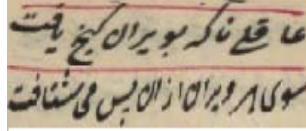 عاقلے ناگہ بویران گنج یافت
سوی هر ویران ازان پس می شتافت